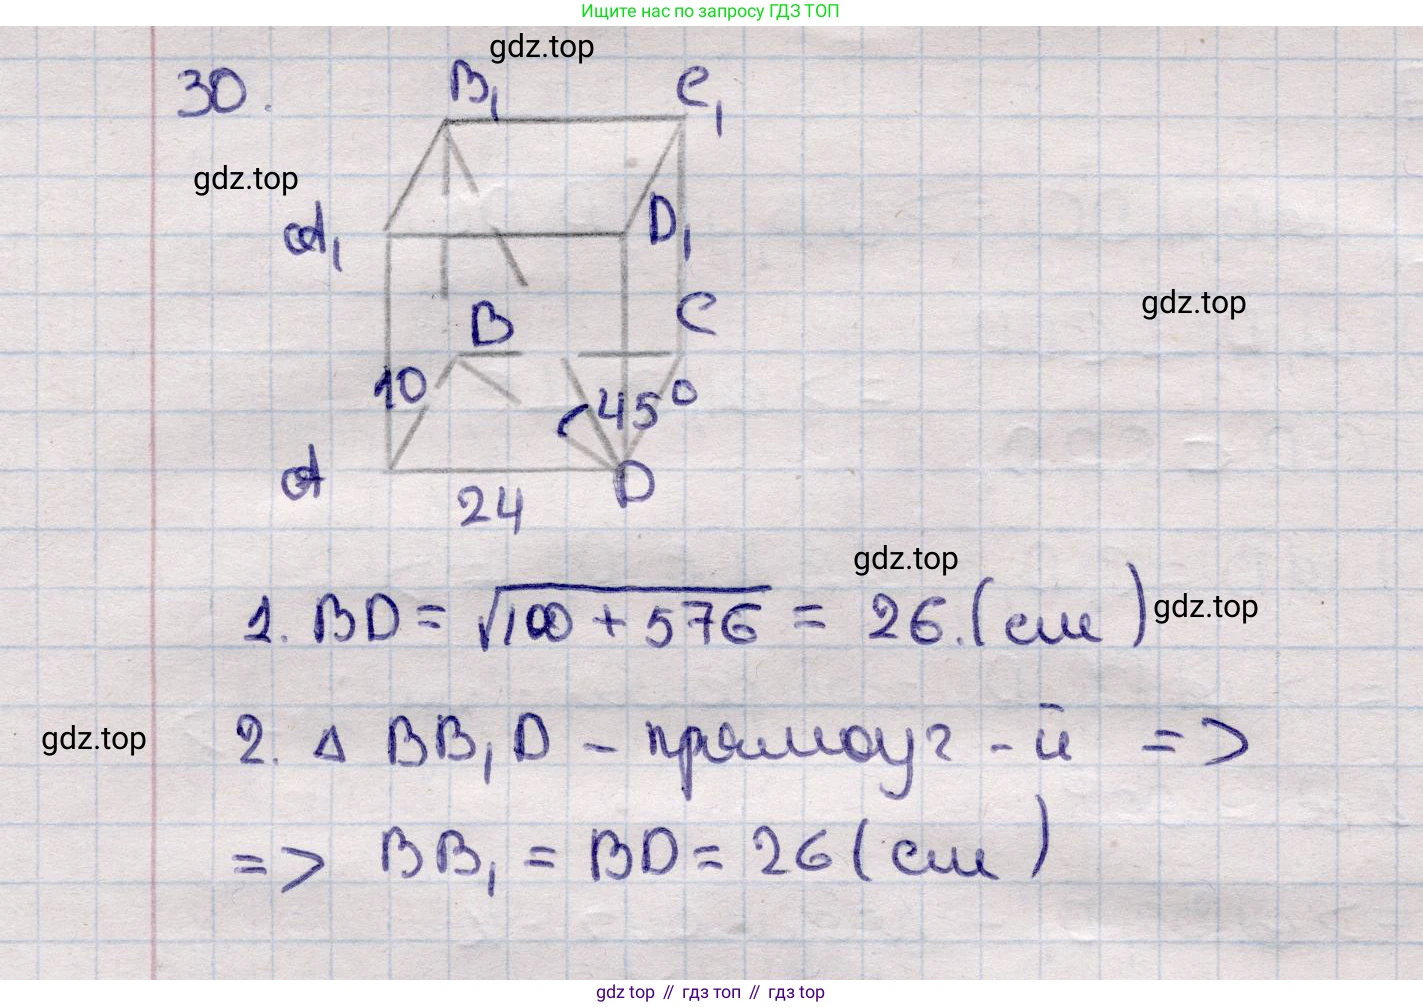 Ищите нас по запросу ГДЗ ТОП
gdz.top
30.
B₁
C₁
gdz.top
A₁
D₁
gdz.top
B
C
10
45°
A
D
24
gdz.top
1. BD = √100 + 576 = 26.(см)
gdz.top
gdz.top
2. Δ BB₁D – прямоуг-й =>
=> BB₁ = BD = 26 (см)
gdz top // гдз топ // гдз top